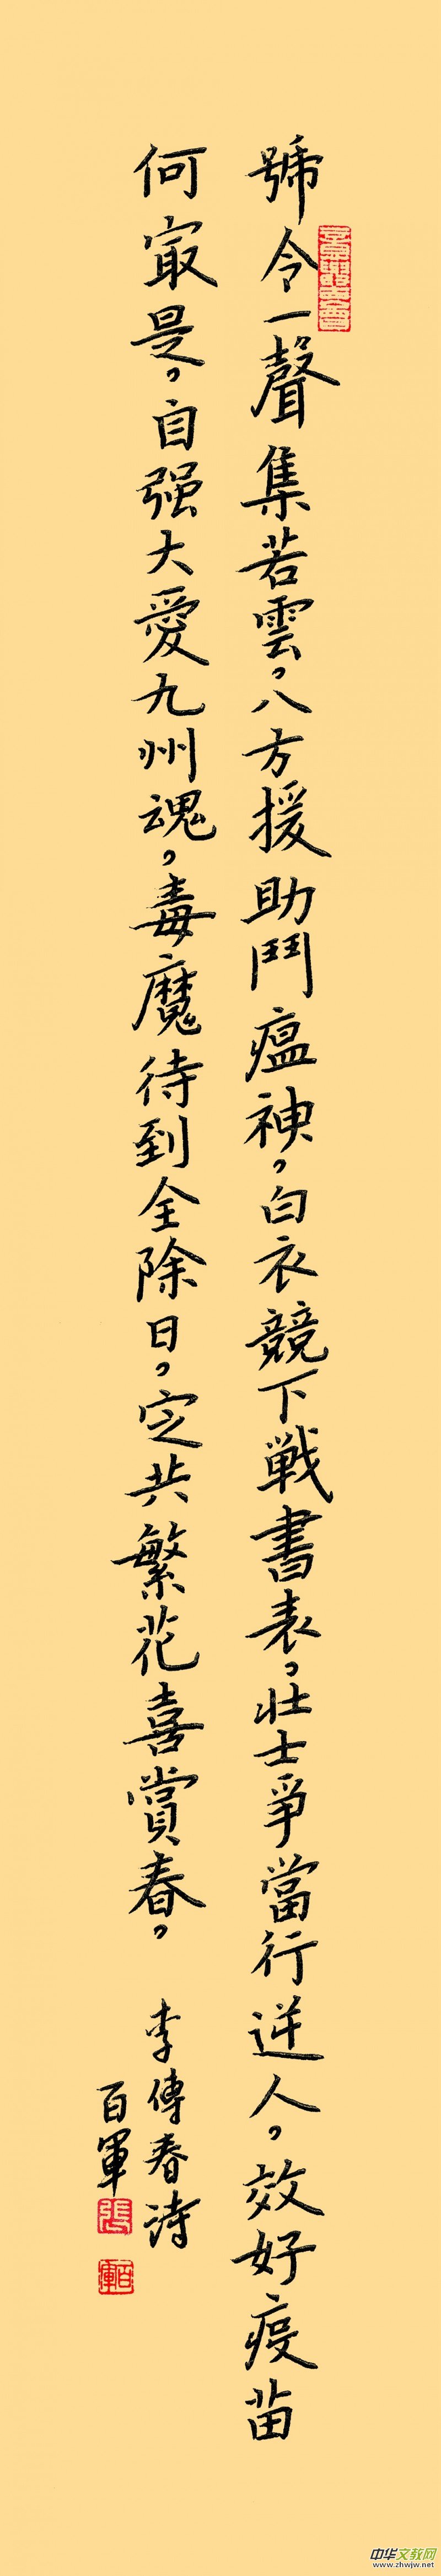 號令一聲集若雲。八方援助鬥瘟神，白衣競下戰書表。壯士爭當行逆人，效好疫苗
何最是，自强大愛九州魂，毒魔待到全除日，定共繁花喜賞春。
李傳春詩
百軍
張
百軍
中华文教网
www.zhwjw.net